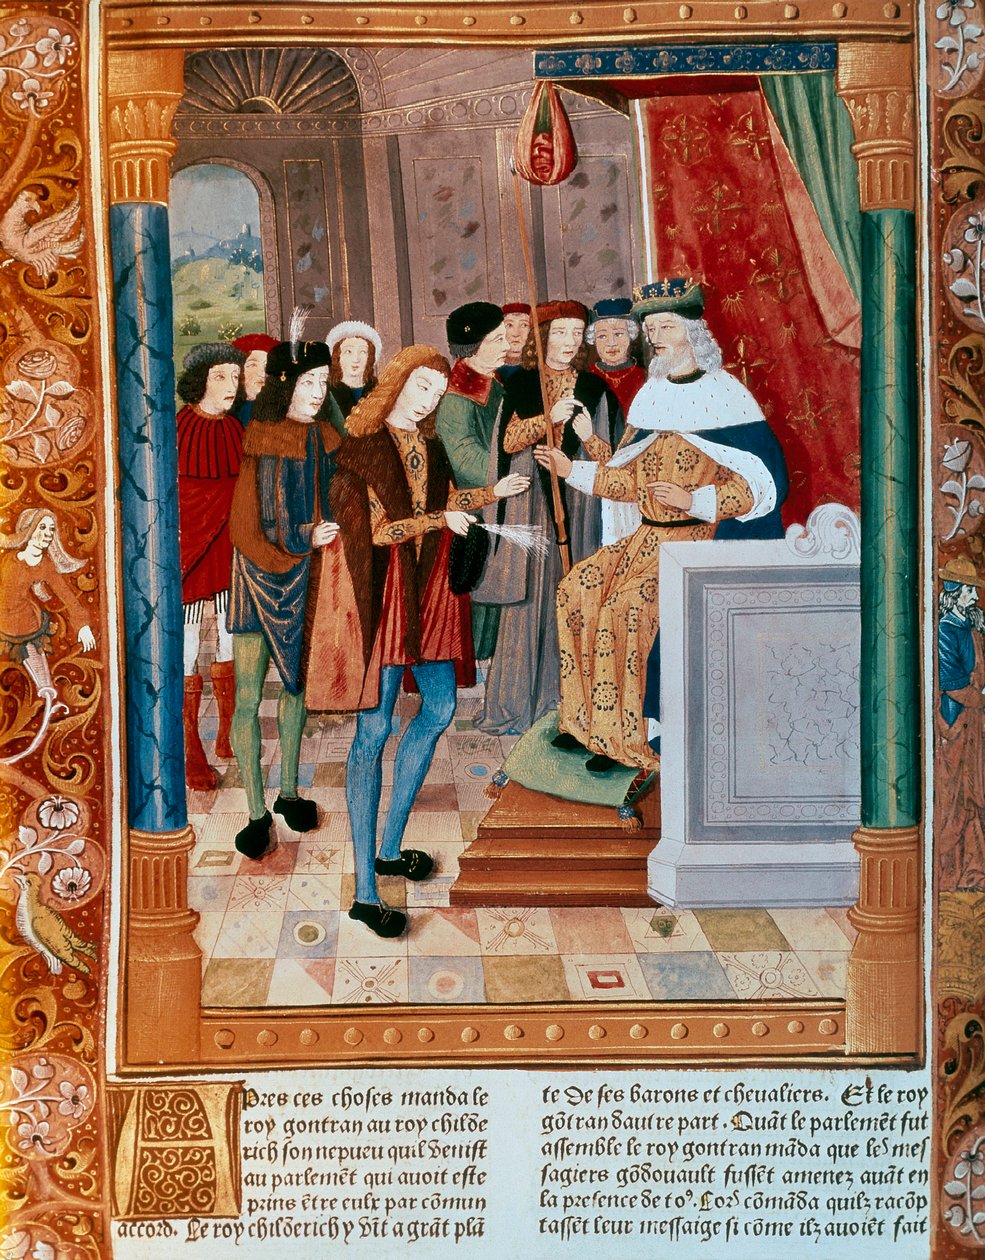 Apres ces choses manda le
roy gontran au roy childe
rich son nepueu quil venist
au parlemẽt qui avoit este
prins ẽtre eulx par cõmun
accord. Le roy childerich y vĩt a grãt plã
te de ses barons et chevaliers. Et le roy
gõtran dautre part. Quãt le parlemẽt fut
assemble le roy gontran mãda que led' mes
sagiers gõdouault fussẽt amenez auãt en
la presence de to9. Lors cõmãda quilz racõp
tassẽt leur messaige si cõme ilz avoiẽt fait